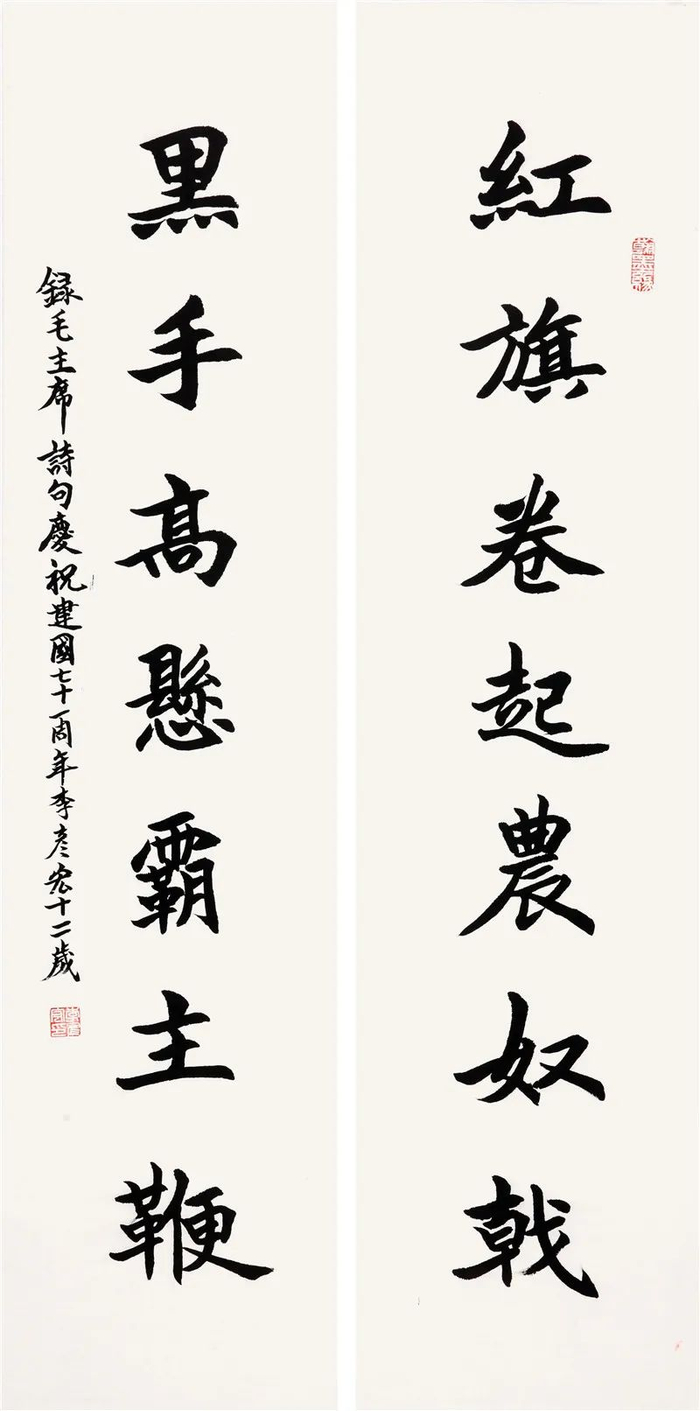 紅旗卷起農奴戟
黑手高懸霸主鞭
録毛主席詩句慶祝建國七十一周年李彦宏十二歲